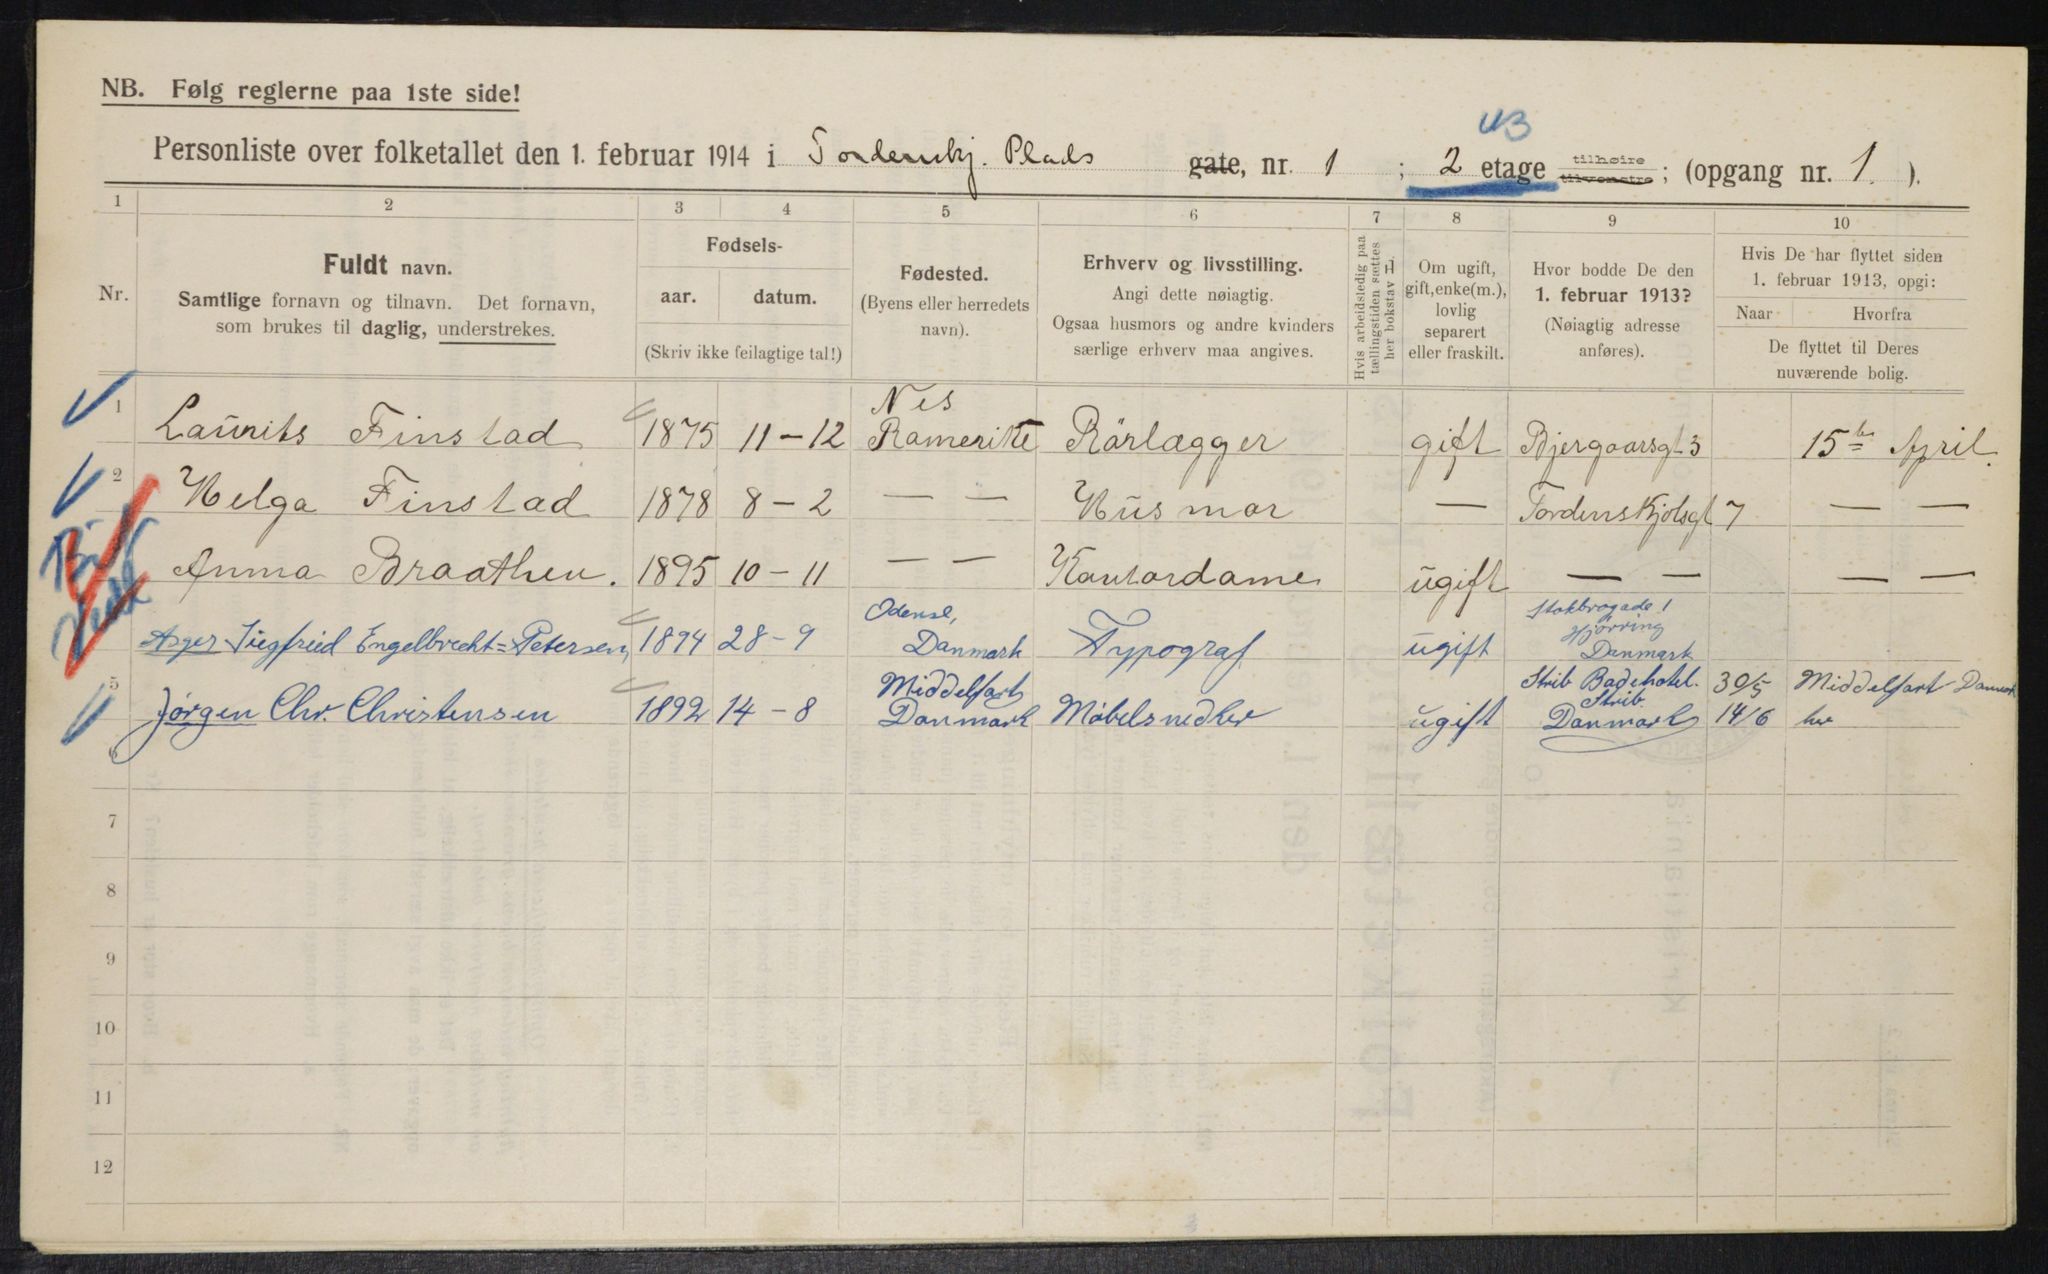 NB. Følg reglerne paa 1ste side!
Personliste over folketallet den 1. februar 1914 i Tordenskj. Plads gate, nr. 1 ; 2 etage tilhøire tilvenstre; (opgang nr. 1. ).
1 2 3 4 5 6 7 8 9 10
Nr.
Fuldt navn.
Samtlige fornavn og tilnavn. Det fornavn,
som brukes til daglig, understrekes.
Fødsels-
aar. datum.
(Skriv ikke feilagtige tal!)
Fødested.
(Byens eller herredets
navn).
Erhverv og livsstilling.
Angi dette nøiagtig.
Ogsaa husmors og andre kvinders
særlige erhverv maa angives.
Hvis arbeidsledig paa
tællingstiden sættes
her bokstav L
Om ugift,
gift, enke(m.),
lovlig
separert
eller fraskilt.
Hvor bodde De den
1. februar 1913?
(Nøiagtig adresse
anføres).
Hvis De har flyttet siden
1. februar 1913, opgi:
Naar Hvorfra
De flyttet til Deres
nuværende bolig.
1 Laurits Finstad 1875 11 – 12 Nes Romerike Rörlægger gift Bjergaarsgt 3 15de April.
2 Helga Finstad 1878 8 – 2 — — Husmor — Tordenskjolsgt 7 — —
Anna Braathen. 1895 10 – 11 — — Kontordame ugift — — — —
Asger Siegfried Engelbrecht=Petersen, 1894 28 – 9 Odense, Danmark Typograf ugift Stokbrogade 1 Hjørring Danmark
5 Jørgen Chr. Christensen 1892 14 – 8 Middelfart Danmark Møbelsnedker ugift Strib Badehotel. Strib. Danmark 30/5 Middelfart Danmark
14/6 her
6
7
8
9
10
11
12